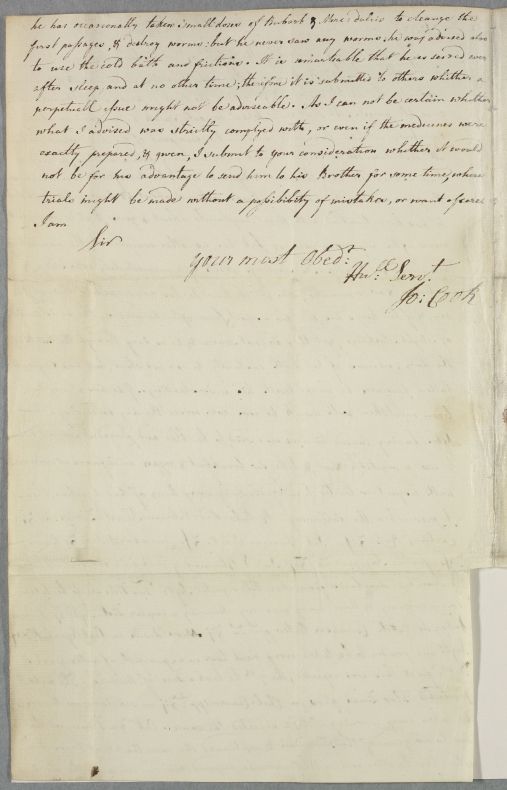 he has occasionally taken small doses of Rubarb & Merc: dulcis to cleanse the
first passages, & destroy worms: but he never saw any worms. he was advised also
to use the cold bath and frictions. It is remarkable that he is seized ever
after sleep and at no other time; therefore it is submitted to others whither a
perpetuall issue might not be adviseable. As I can not be certain whether
what I advised was strictly complyed with, or even if the medicines were
exactly prepared, & given, I submit to your consideration whether it would
not be for his advantage to send him to his Brother for some time, where
trials might be made without a possibility of mistakes, or want of care
I am
Sir
your most Obedt.
Hule. Servt.
Jo: Cook